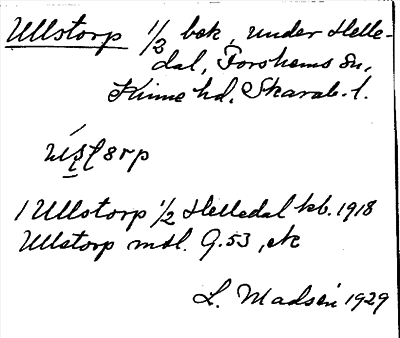 Ullstorp 1/2 bek, under Helle-
dal, Forshems sn,
Kinne hd. Skarab. l.
1 Ullstorp 1/2 Helledal kb. 1918
Ullstorp mtl. G.53, ek
L. Madsén 1929